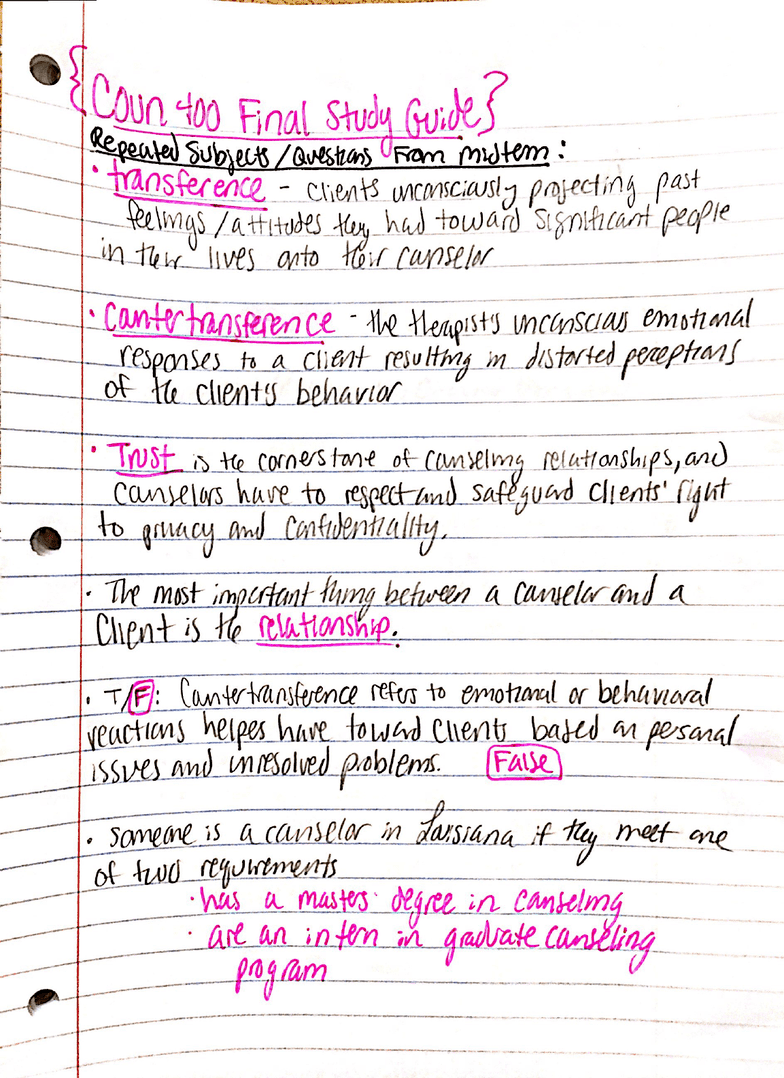 {Coun 400 Final Study Guide}
Repeated Subjects/Questions From midterm:
• transference - clients unconsciously projecting past
feelings/attitudes they had toward significant people
in their lives onto their counselor
• Countertransference - the therapist's unconscious emotional
responses to a client resulting in distorted perceptions
of the client's behavior
• Trust is the cornerstone of counseling relationships, and
counselors have to respect and safeguard clients' right
to privacy and confidentiality.
• The most important thing between a counselor and a
Client is the relationship.
• T/F: Countertransference refers to emotional or behavioral
reactions helpes have toward clients based on personal
issues and unresolved problems. False
• someone is a counselor in Louisiana if they meet one
of two requirements
• has a masters degree in counseling
• are an intern in graduate counseling
program